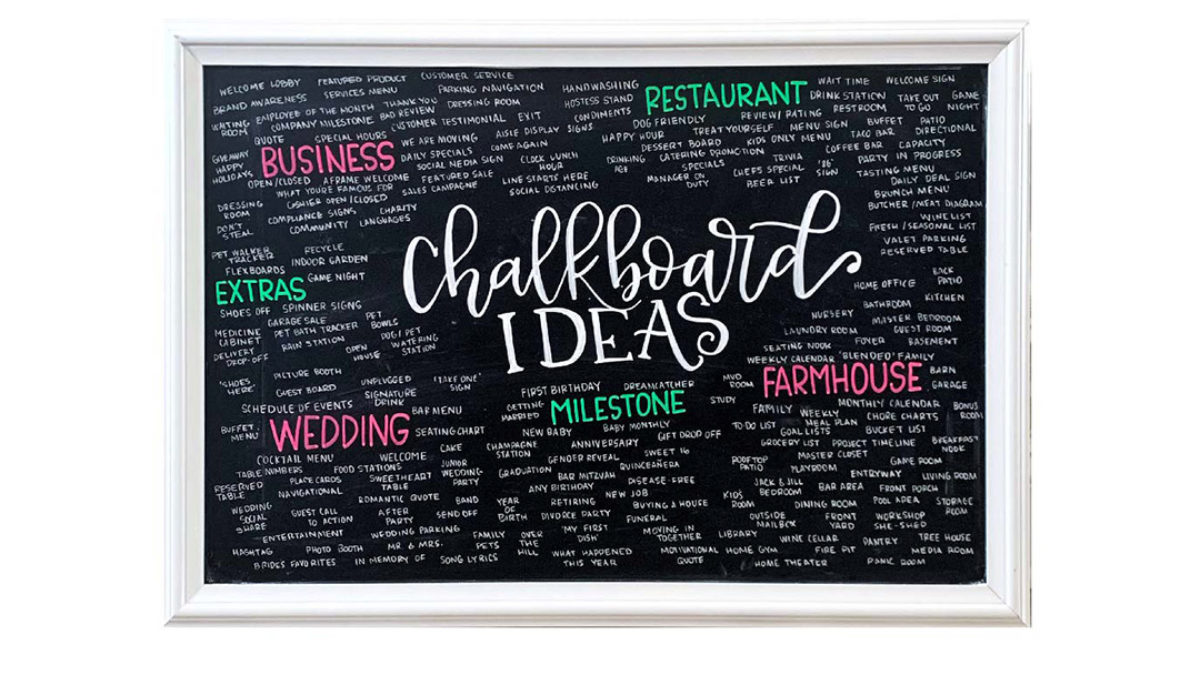 WELCOME LOBBY
FEATURED PRODUCT
CUSTOMER SERVICE
BRAND AWARENESS
SERVICES MENU
PARKING NAVIGATION
WAITING ROOM
EMPLOYEE OF THE MONTH
THANK YOU
DRESSING ROOM
COMPANY MILESTONE
BAD REVIEW
CUSTOMER TESTIMONIAL
EXIT
QUOTE
SPECIAL HOURS
WE ARE MOVING
AISLE DISPLAY
SIGNS
BUSINESS
GIVEAWAY
HAPPY HOLIDAYS
DAILY SPECIALS
COME AGAIN
SOCIAL MEDIA SIGN
CLOCK LUNCH HOUR
OPEN/CLOSED
AFRAME WELCOME
FEATURED SALE
WHAT YOU'RE FAMOUS FOR
SALES CAMPAIGNE
LINE STARTS HERE
SOCIAL DISTANCING
DRESSING ROOM
CASHIER OPEN/CLOSED
DON'T STEAL
COMPLIANCE SIGNS
CHARITY
COMMUNITY
LANGUAGES
HANDWASHING
HOSTESS STAND
CONDIMENTS
RESTAURANT
WAIT TIME
WELCOME SIGN
DRINK STATION
TAKE OUT
GAME NIGHT
RESTROOM
TO GO
DOG FRIENDLY
REVIEW/RATING
HAPPY HOUR
TREAT YOURSELF
MENU SIGN
BUFFET
PATIO
DESSERT BOARD
KIDS ONLY MENU
TACO BAR
DIRECTIONAL
DRINKING AGE
CATERING PROMOTION
COFFEE BAR
CAPACITY
SPECIALS
TRIVIA
PARTY IN PROGRESS
MANAGER ON DUTY
CHEFS SPECIAL
"86" SIGN
TASTING MENU
BEER LIST
DAILY DEAL SIGN
BRUNCH MENU
BUTCHER/MEAT DIAGRAM
WINE LIST
FRESH/SEASONAL LIST
VALET PARKING
RESERVED TABLE
chalkboard
IDEAS
PET WALKER TRACKER
RECYCLE
INDOOR GARDEN
FLEXBOARDS
GAME NIGHT
EXTRAS
SHOES OFF
SPINNER SIGNS
GARAGE SALE
PET BOWLS
MEDICINE CABINET
PET BATH TRACKER
DELIVERY DROP-OFF
RAIN STATION
OPEN HOUSE
DOG/PET WATERING STATION
PICTURE BOOTH
"SHOES HERE"
GUEST BOARD
UNPLUGGED
"TAKE ONE" SIGN
SIGNATURE DRINK
SCHEDULE OF EVENTS
BAR MENU
BUFFET MENU
WEDDING
SEATING CHART
COCKTAIL MENU
WELCOME
CAKE
TABLE NUMBERS
FOOD STATIONS
JUNIOR WEDDING PARTY
RESERVED TABLE
PLACE CARDS
SWEETHEART TABLE
NAVIGATIONAL
ROMANTIC QUOTE
BAND
WEDDING SOCIAL SHARE
GUEST CALL TO ACTION
AFTER PARTY
SEND OFF
ENTERTAINMENT
WEDDING PARKING
HASHTAG
PHOTO BOOTH
MR. & MRS.
FAMILY PETS
BRIDES FAVORITES
IN MEMORY OF
SONG LYRICS
FIRST BIRTHDAY
DREAMCATCHER
GETTING MARRIED
MILESTONE
NEW BABY
BABY MONTHLY
CHAMPAGNE STATION
ANNIVERSARY
GIFT DROP OFF
GENDER REVEAL
SWEET 16
GRADUATION
BAR MITZVAH
QUINCEAÑERA
ANY BIRTHDAY
DISEASE-FREE
YEAR OF BIRTH
RETIRING
NEW JOB
BUYING A HOUSE
DIVORCE PARTY
FUNERAL
OVER THE HILL
"MY FIRST DISH"
MOVING IN TOGETHER
WHAT HAPPENED THIS YEAR
MOTIVATIONAL QUOTE
BACK PATIO
HOME OFFICE
BATHROOM
KITCHEN
NURSERY
MASTER BEDROOM
LAUNDRY ROOM
GUEST ROOM
SEATING NOOK
FOYER
BASEMENT
WEEKLY CALENDAR
"BLENDED" FAMILY
MUD ROOM
FARMHOUSE
BARN
GARAGE
STUDY
FAMILY TO DO LIST
WEEKLY MEAL PLAN
MONTHLY CALENDAR
BONUS ROOM
CHORE CHARTS
GOAL LISTS
BUCKET LIST
GROCERY LIST
PROJECT TIMELINE
BREAKFAST NOOK
ROOFTOP PATIO
MASTER CLOSET
GAME ROOM
PLAYROOM
ENTRYWAY
LIVING ROOM
KIDS ROOM
JACK & JILL BEDROOM
BAR AREA
FRONT PORCH
DINING ROOM
POOL AREA
STORAGE ROOM
OUTSIDE MAILBOX
FRONT YARD
WORKSHOP
SHE-SHED
LIBRARY
WINE CELLAR
PANTRY
TREE HOUSE
HOME GYM
FIRE PIT
MEDIA ROOM
HOME THEATER
PANIC ROOM